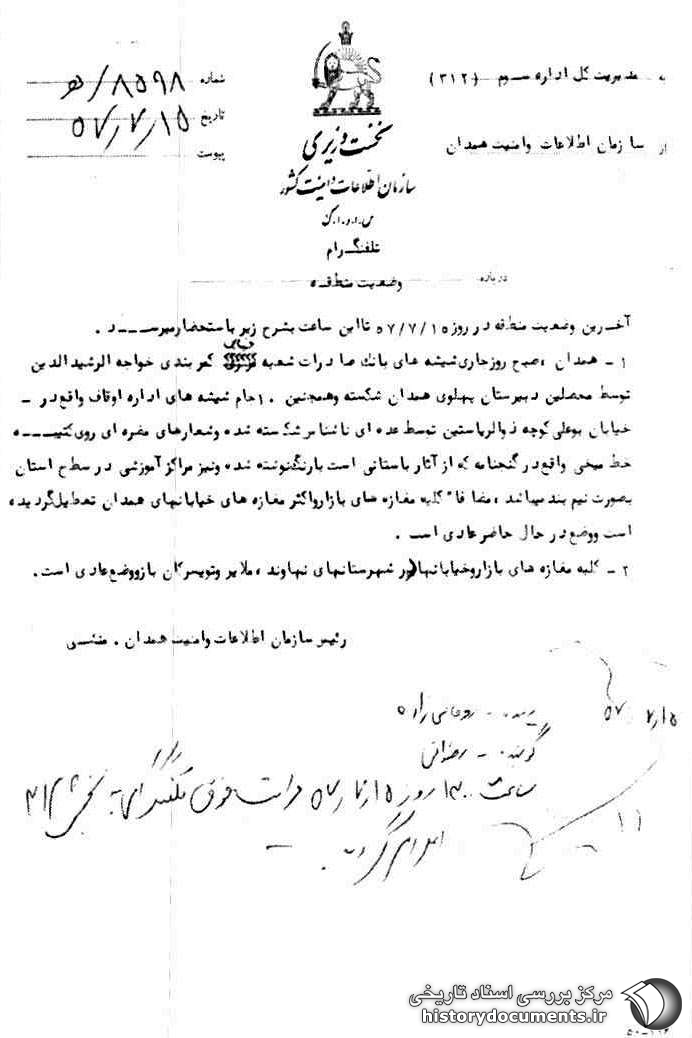 به مدیریت کل اداره سوم (۳۱۲)
شماره ۸۵۹۸/ه
تاریخ ۵۷/۷/۱۵
از سازمان اطلاعات وامنیت همدان
پیوست
نخست وزیری
سازمان اطلاعات و امنیت کشور
س.ا.و.ا.ک
تلفنگرام
درباره وضعیت منطقه
آخرین وضعیت منطقه در روز ۵۷/۷/۱۵ تا این ساعت بشرح زیر باستحضار میرسد .
۱ - همدان ، صبح روزجاری شیشه های بانک صادرات شعبه خیابان کمربندی خواجه الرشیدالدین
توسط محصلین دبیرستان پهلوی همدان شکسته وهمچنین ۱۰ جام شیشه های اداره اوقاف واقع در -
خیابان بوعلی کوچه ذوالریاستین توسط عده ای ناشناس شکسته شده وشعارهای مضره ای روی کتیبه
خط میخی واقع در گنجنامه که از آثار باستانی است بارنگ نوشته شده ونیز مراکز آموزشی در سطح استان
بصورت نیم بند میباشد ، مضافا" کلیه مغازه های بازار واکثر مغازه های خیابانهای همدان تعطیل گردیده
است ووضع در حال حاضر عادی است .
۲ - کلیه مغازه های بازاروخیابانها در شهرستانهای نهاوند ، ملایر وتویسرکان بازووضع عادی است .
رئیس سازمان اطلاعات وامنیت همدان .
گیرنده - روحانی زاده
۵۷/۷/۱۵
گوینده - رضوانی
ساعت ۱۳۰۰ روز ۵۷/۷/۱۵ مراتب فوق تلفنگرامی به بخش ۳۱۲
اعلام گردید .
۱۱
مرکز بررسی اسناد تاریخی
historydocuments.ir